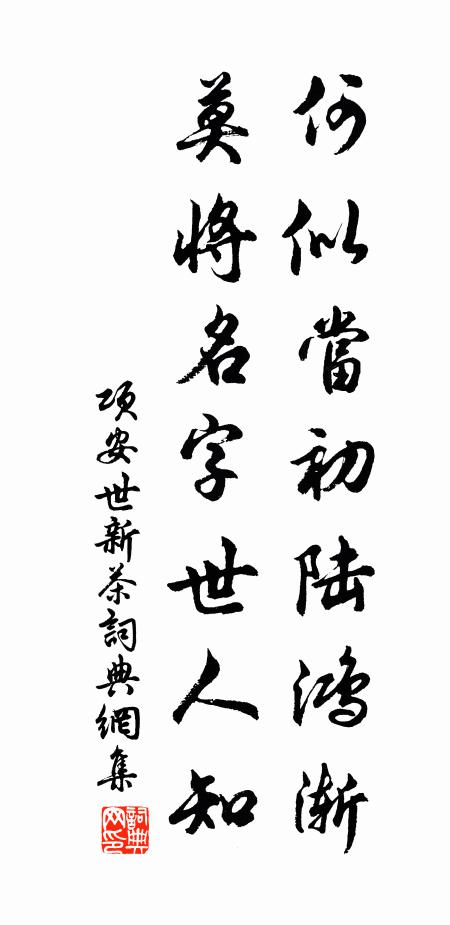 何似當初陆鴻漸
莫將名字世人知
项安世新茶詞典網集
詞典网印